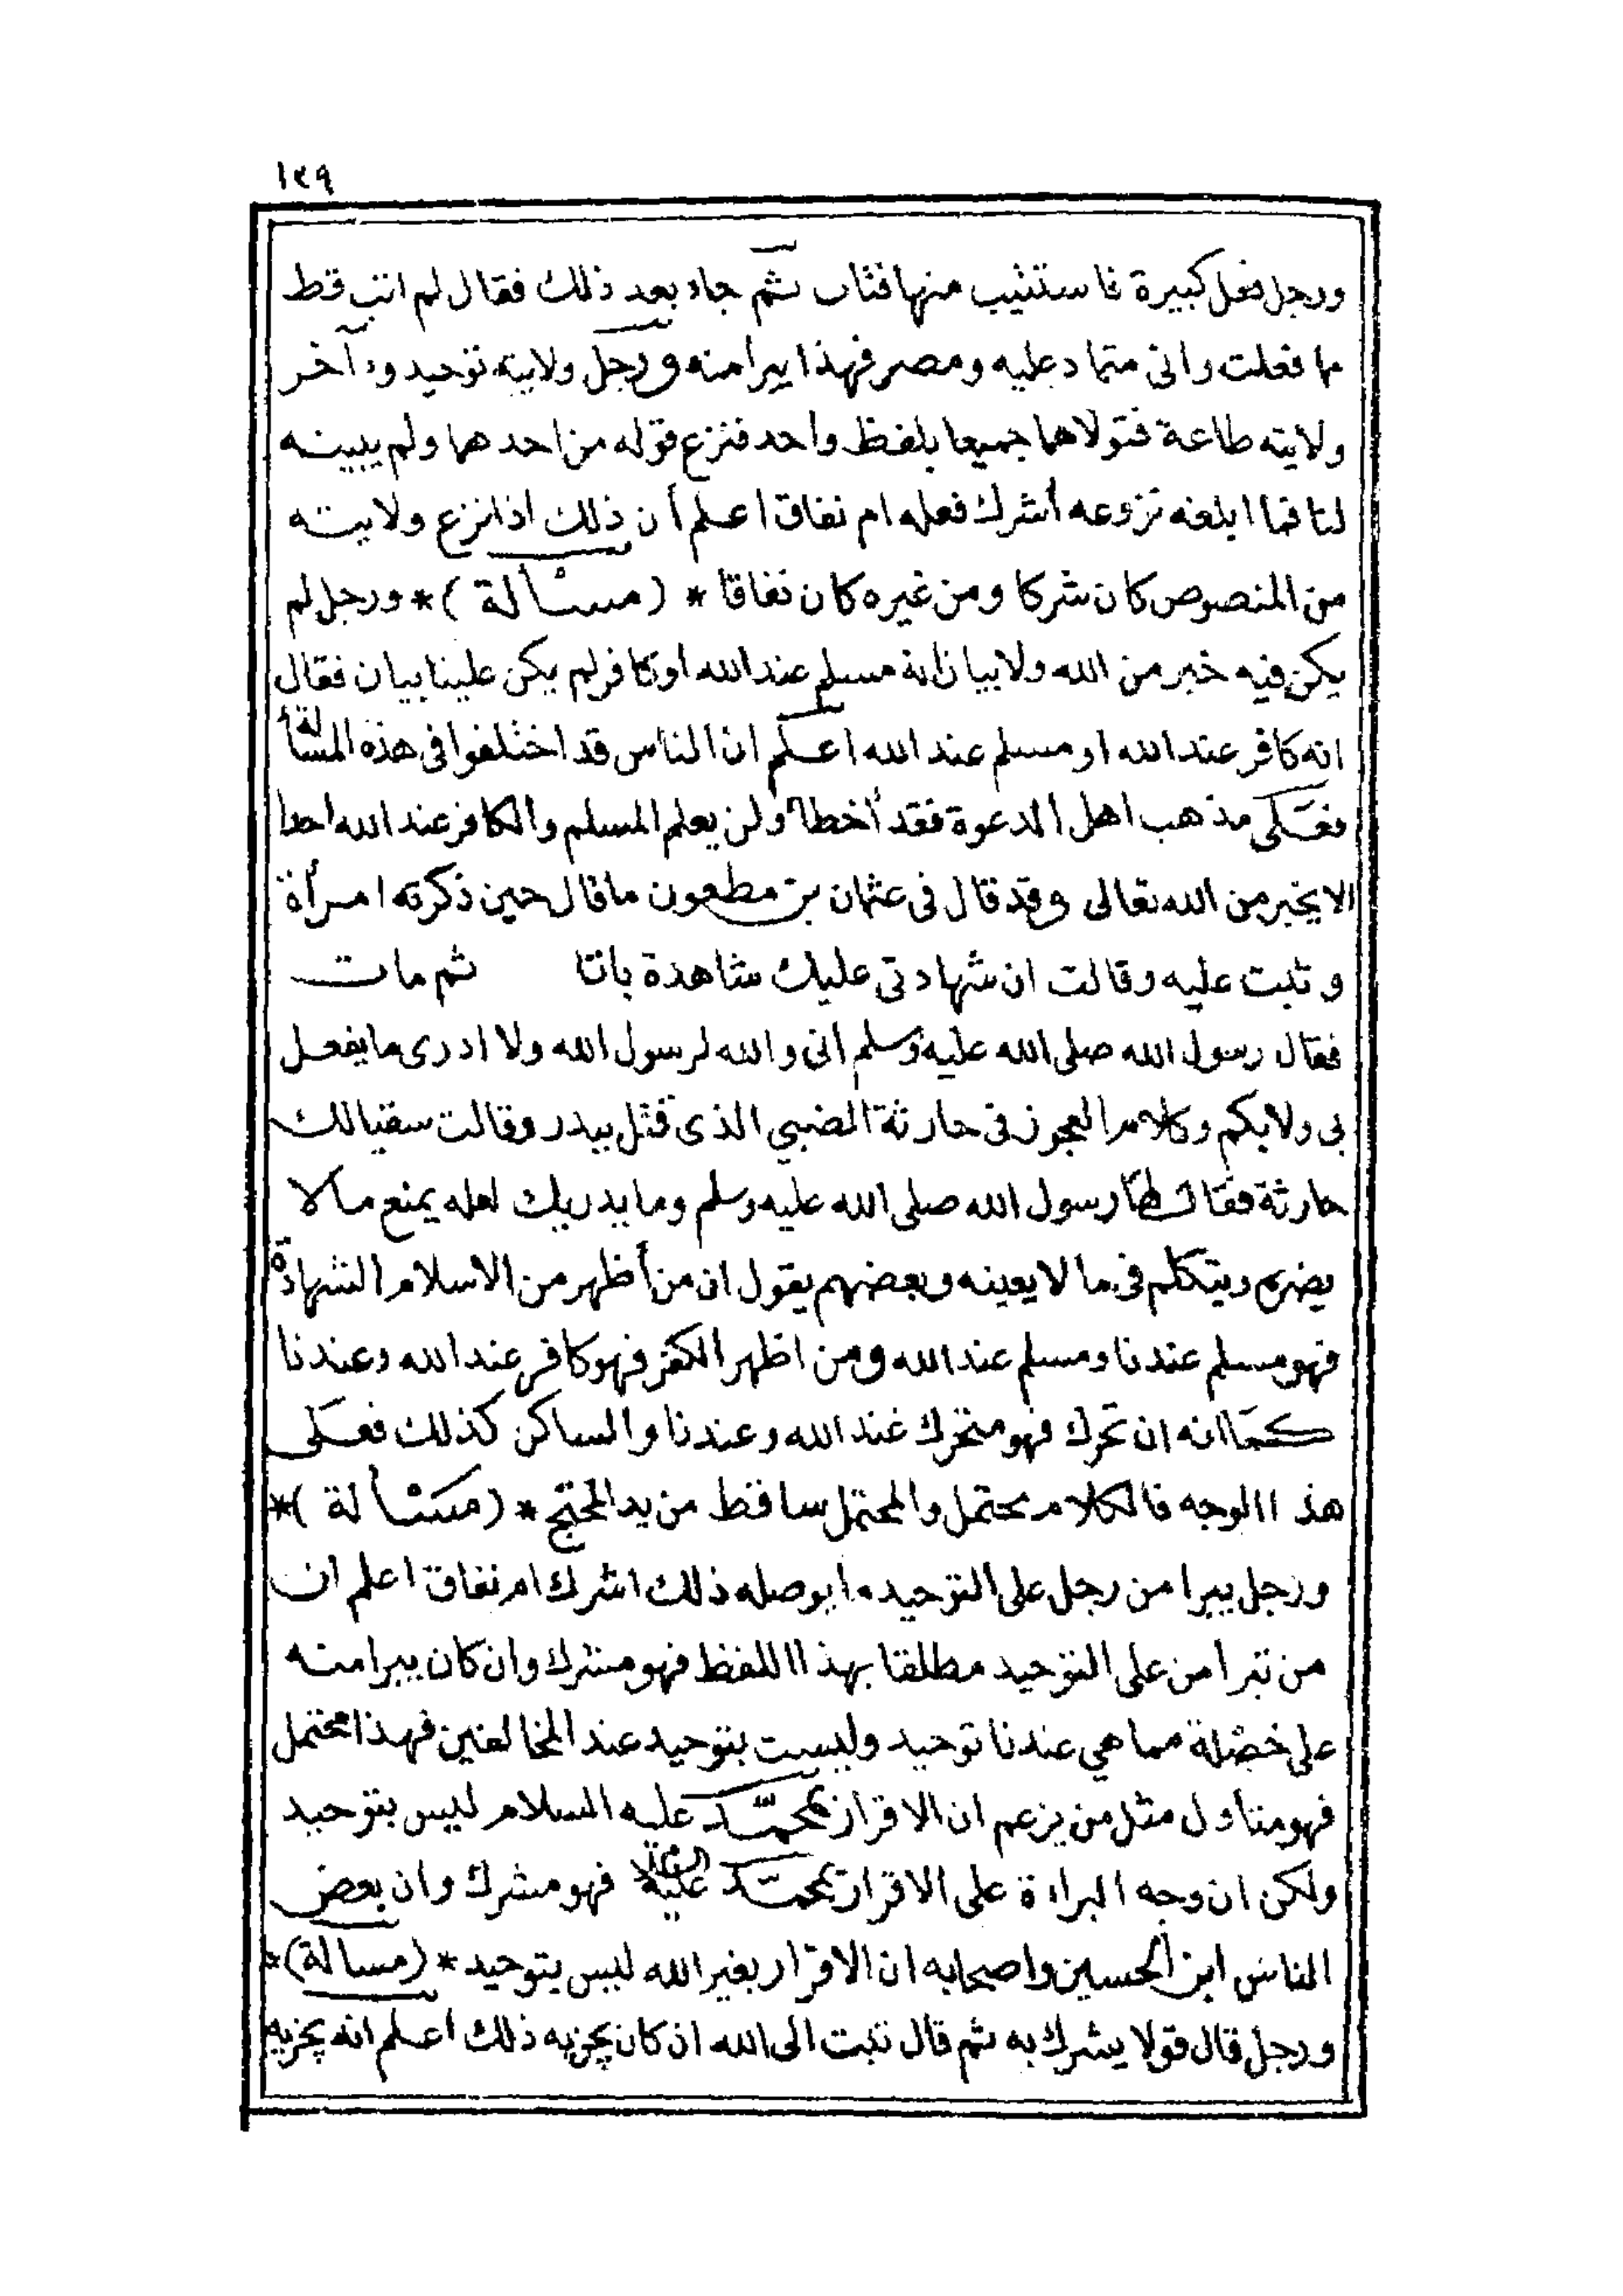 ١٢٩
ورجل فعل كبيرة فاستتيب منها فتاب ثم جاء بعد ذلك فقال لم اتب قط
مما فعلت وانى متماد عليه ومصر فهذا يبرا منه ورجل ولايته توحيد وءآخر
ولايته طاعة فتولاهما جميعا بلفظ واحد فنزع قوله من احدهما ولم يبينه
لنا فما ابلغه نزوعه أشرك فعله ام نفاق اعلم أن ذلك اذا نزع ولايته
من المنصوص كان شركا ومن غيره كان نفاقا * (مسألة) * ورجل لم
يكن فيه خبر من الله ولا بيان انه مسلم عند الله او كافر لم يكن علينا بيان فقال
انه كافر عند الله او مسلم عند الله اعلم ان الناس قد اختلفوا فى هذه المسألة
فعلى مذهب اهل الدعوة فقد أخطأ ولن يعلم المسلم والكافر عند الله احدا
الا بخبر من الله تعالى وقد قال فى عثمان بن مطعون ما قال حين ذكرته امرأة
وثبت عليه وقالت ان شهادتى عليك شاهدة باتا ثم مات
فقال رسول الله صلى الله عليه وسلم انى والله لرسول الله ولا ادرى ما يفعل
بى ولا بكم وكلام العجوز فى حارثة الضبي الذى قتل ببدر وقالت سقيا لك
حارثة فقال لها رسول الله صلى الله عليه وسلم وما يدريك لعله يمنع ما لا
يضره ويتكلم فى ما لا يعينه وبعضهم يقول ان من أظهر من الاسلام الشهادة
فهو مسلم عندنا ومسلم عند الله ومن اظهر الكفر فهو كافر عند الله وعندنا
كما انه ان تحرك فهو متحرك عند الله وعندنا والساكن كذلك فعلى
هذا الوجه فالكلام محتمل والمحتمل ساقط من يد المحتج * (مسألة) *
ورجل يبرا من رجل على التوحيد ما يوصله ذلك اشرك ام نفاق اعلم ان
من تبرا من على التوحيد مطلقا بهذا اللفظ فهو مشرك وان كان يبرا منه
على خصلة مما هي عندنا توحيد وليست بتوحيد عند المخالفين فهذا محتمل
فهو متأول مثل من يزعم ان الاقرار بمحمد عليه السلام ليس بتوحيد
ولكن ان وجه البراءة على الاقرار بمحمد عليه السلام فهو مشرك وان بعض
الناس ابن الحسين واصحابه ان الاقرار بغير الله ليس بتوحيد * (مسالة) *
ورجل قال قولا يشرك به ثم قال تبت الى الله ان كان يجزيه ذلك اعلم انه يجزيه